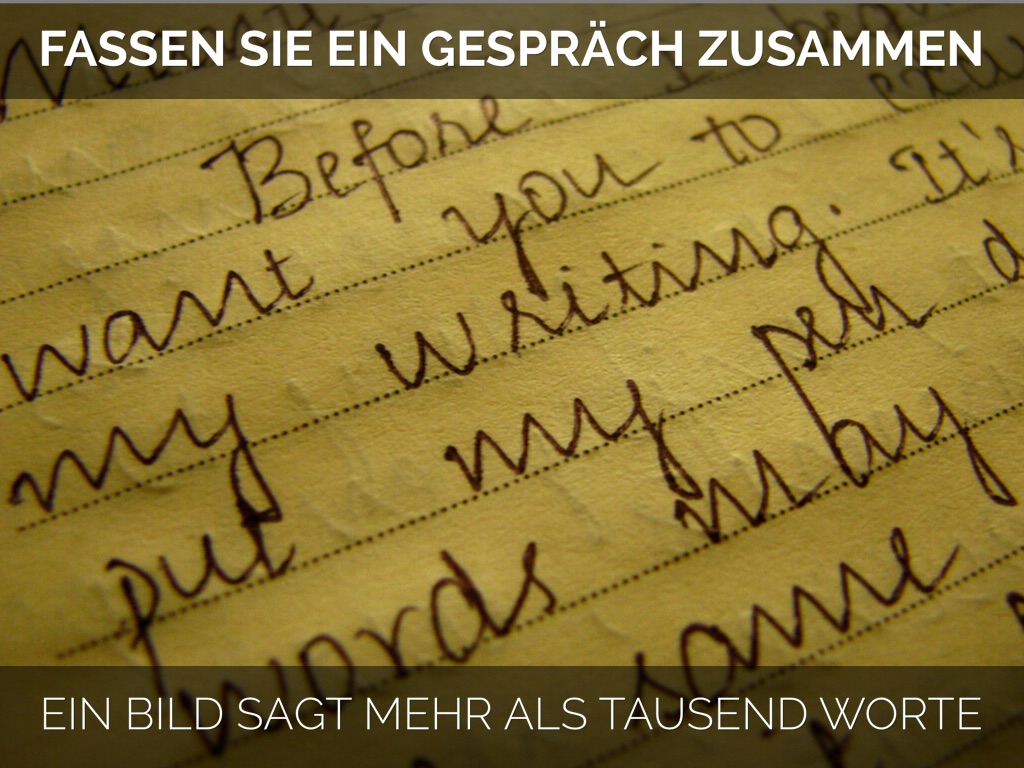 FASSEN SIE EIN GESPRÄCH ZUSAMMEN
Before
want you to
my writing. It's
put my pen
words may
same
EIN BILD SAGT MEHR ALS TAUSEND WORTE